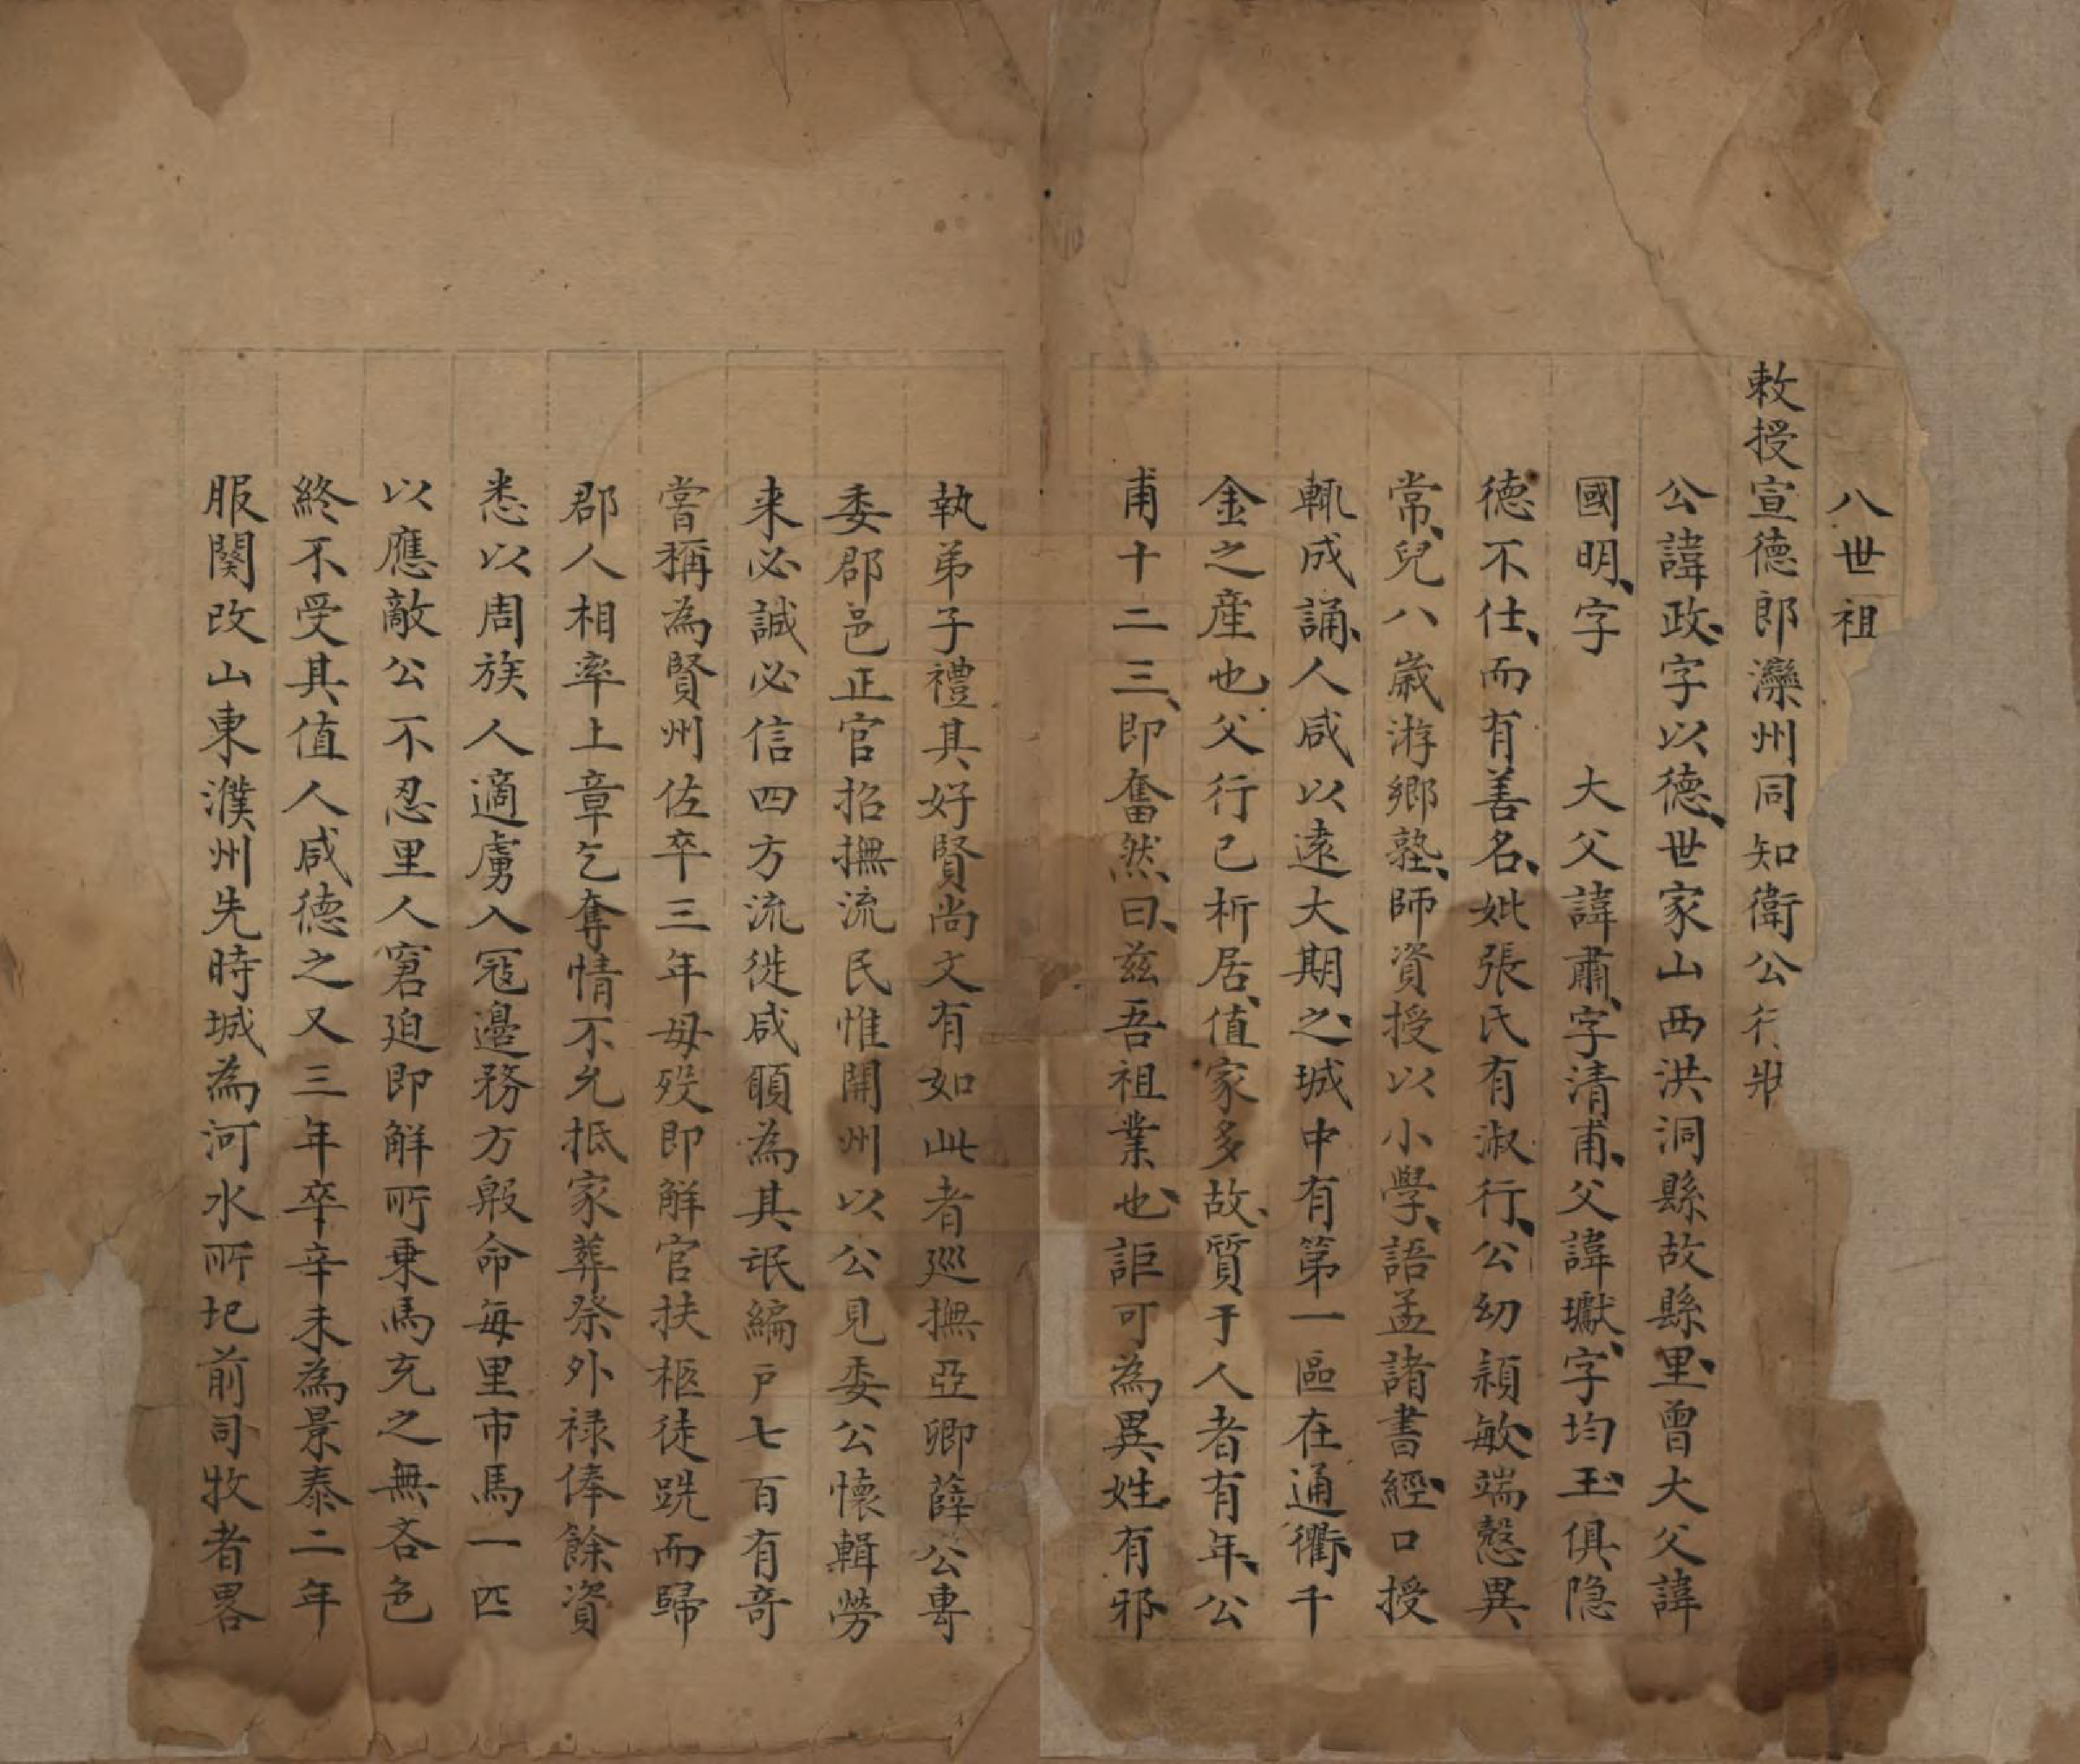 八世祖
敕授宣德郎灤州同知衛公行狀
公諱政、字以德、世家山西洪洞縣故縣里、曾大父諱
國明、字　　大父諱肅、字清甫、父諱瓛、字均玉、俱隐
德不仕、而有善名、妣張氏有淑行、公幼穎敏端慤異
常、兒八歲游鄉塾、師資授以小學、語孟諸書經、口授
輒成誦、人咸以遠大期之、城中有第一區在通衢、千
金之產也、父行已析居、值家多故、質于人者有年、公
甫十二三、即奮然、曰、茲吾祖業也、詎可為異姓有邪
執弟子禮其好賢尚文有如此者巡撫亞卿薛公專
委郡邑正官招撫流民惟開州以公見委公懷輯勞
来必誠必信四方流徙咸願為其氓編戶七百有奇
嘗稱為賢州佐卒三年母歿即解官扶柩徒跣而歸
郡人相率上章乞奪情不允抵家葬祭外禄俸餘資
悉以周族人適虜入寇邊務方殷命每里市馬一匹
以應敵公不忍里人窘迫即解所乗馬充之無吝色
終不受其值人咸德之又三年卒辛未為景泰二年
服闋改山東濮州先時城為河水所圮前司牧者畧